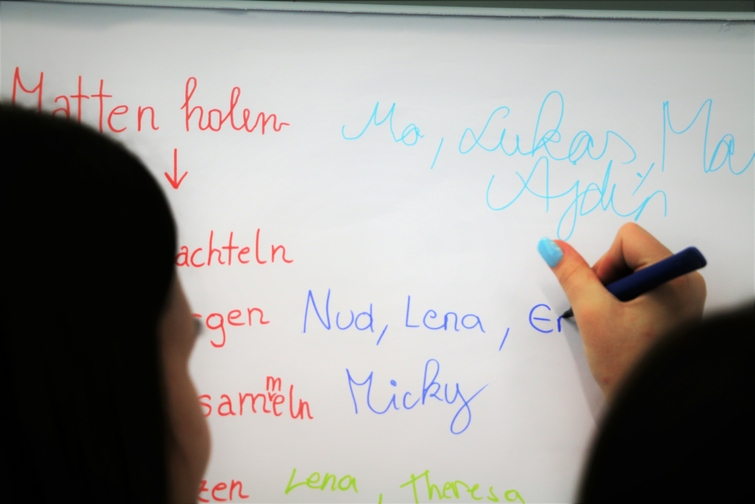 Matten holen Mo, Lukas, Ma
Ajdin
achteln
gen Nud, Lena, Er
sammeln Micky
zen Lena, Theresa